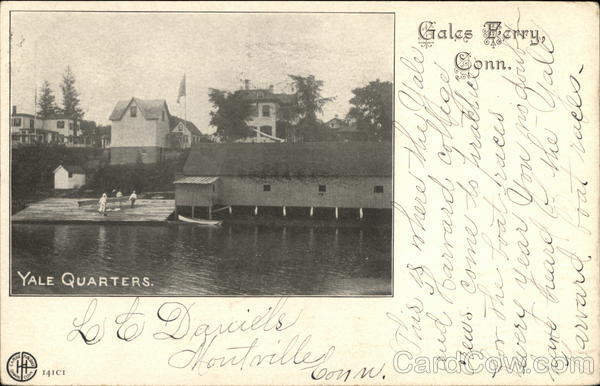 Gales Ferry,
Conn.
This is where the Yale
and Harvard college
crews come to practice
for the boat races
every year You no doubt
have heard of the Yale
Harvard boat races.
YALE QUARTERS.
L C Daniels
Montville
Conn.
141C1
CardCow.com